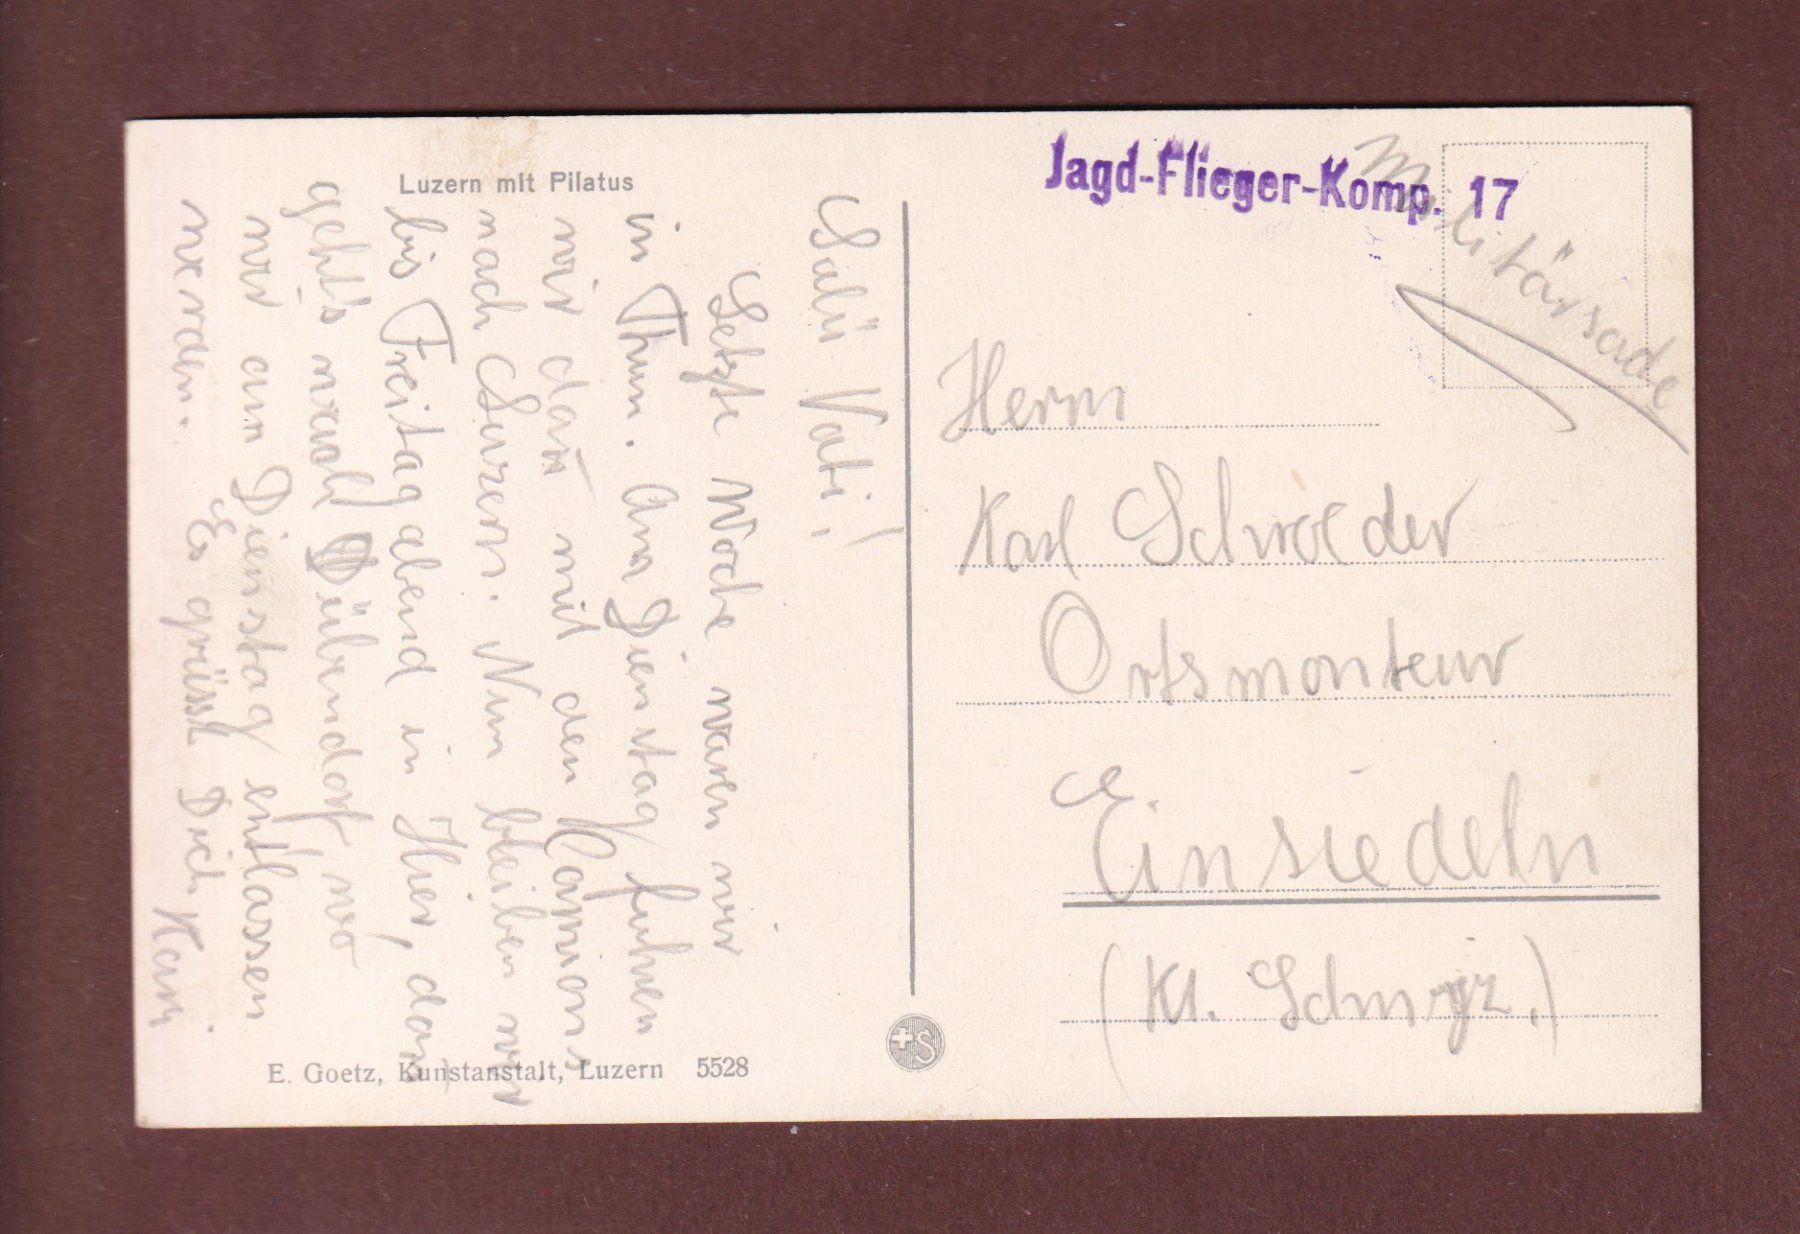 Luzern mit Pilatus
Salü Vati!
Letzte Woche waren wir
in Thun. Am Dienstag fuhren
wir dan̄ mit den Kamions
nach Luzern. Nun bleiben wir
bis Freitag abend in Hier, dan̄
geht's nach Dübendorf wo
wir am Dienstag entlassen
werden.
Es grüsst Dich Kari
E. Goetz, Kunstanstalt, Luzern 5528
+S
Jagd-Flieger-Komp. 17
Militärsache
Herrn
Karl Schroeder
Ortsmonteur
Einsiedeln
(Kt. Schwyz.)